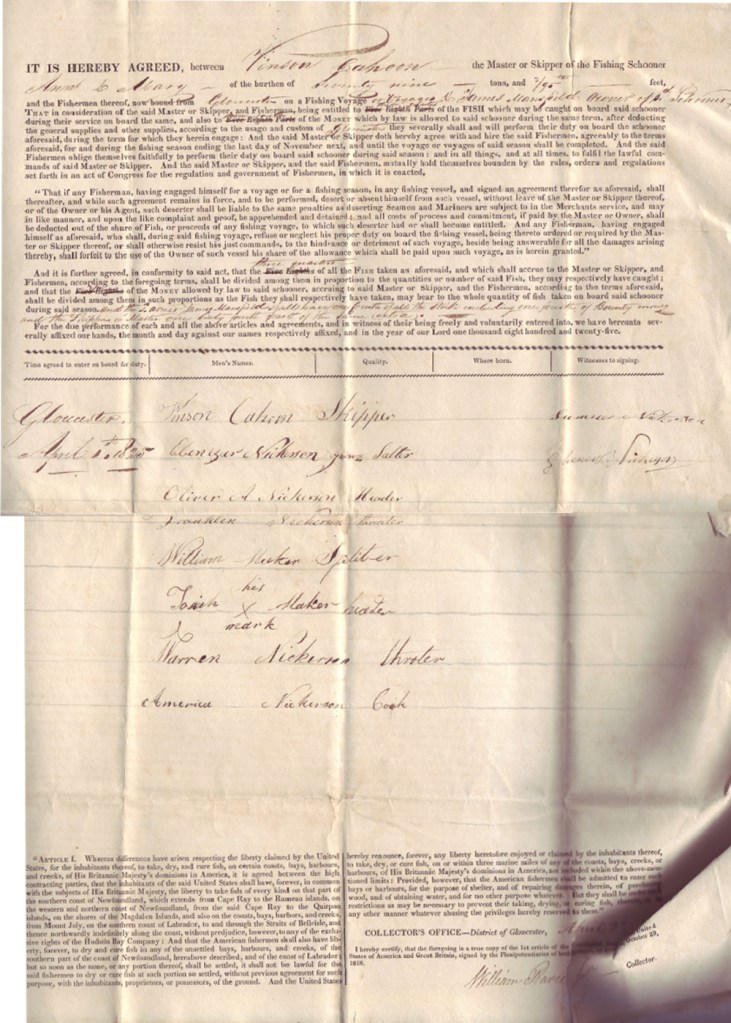 IT IS HEREBY AGREED, between Vinson Cahoon the Master or Skipper of the Fishing Schooner
Mary of the burthen of nine tons, and /95 feet,
and the Fishermen thereof, now bound from Gloucester on a Fishing Voyage James Mansfield owner of sd Schooner
THAT in consideration of the said Master or Skipper, and Fishermen, being entitled to Five Eighth Parts of the FISH which may be caught on board said schooner
during their service on board the same, and also to Five Eighth Parts of the MONEY which by law is allowed to said schooner during the same term, after deducting
the general supplies and other supplies, according to the usage and custom of Gloucester they severally shall and will perform their duty on board the schooner
aforesaid, during the term for which they herein engage: And the said Master or Skipper doth hereby agree with and hire the said Fishermen, agreeably to the terms
aforesaid, for and during the fishing season ending the last day of November next, and until the voyage or voyages of said season shall be completed. And the said
Fishermen oblige themselves faithfully to perform their duty on board said schooner during said season: and in all things, and at all times, to fulfil the lawful com-
mands of said Master or Skipper. And the said Master or Skipper, and the said Fishermen, mutually hold themselves bounden by the rules, orders and regulations
set forth in an act of Congress for the regulation and government of Fishermen, in which it is enacted,
"That if any Fisherman, having engaged himself for a voyage or for a fishing season, in any fishing vessel, and signed an agreement therefor as aforesaid, shall
thereafter, and while such agreement remains in force, and to be performed, desert or absent himself from such vessel, without leave of the Master or Skipper thereof,
or of the Owner or his Agent, such deserter shall be liable to the same penalties as deserting Seamen and Mariners are subject to in the Merchants service, and may
in like manner, and upon the like complaint and proof, be apprehended and detained; and all costs of process and commitment, if paid by the Master or Owner, shall
be deducted out of the share of Fish, or proceeds of any fishing voyage, to which such deserter had or shall become entitled. And any Fisherman, having engaged
himself as aforesaid, who shall, during said fishing voyage, refuse or neglect his proper duty on board the fishing vessel, being thereto ordered or required by the Mas-
ter or Skipper thereof, or shall otherwise resist his just commands, to the hindrance or detriment of such voyage, beside being answerable for all the damages arising
thereby, shall forfeit to the use of the Owner of such vessel his share of the allowance which shall be paid upon such voyage, as is herein granted."
And it is further agreed, in conformity to said act, that the Five Eighths of all the FISH taken as aforesaid, and which shall accrue to the Master or Skipper, and
Fishermen, according to the foregoing terms, shall be divided among them in proportion to the quantities or number of said Fish, they may respectively have caught;
and that the Five Eighths of the MONEY allowed by law to said schooner, accruing to said Master or Skipper, and the Fishermen, according to the terms aforesaid,
shall be divided among them in such proportions as the Fish they shall respectively have taken, may bear to the whole quantity of fish taken on board said schooner
during said season
For the due performance of each and all the above articles and agreements, and in witness of their being freely and voluntarily entered into, we have hereunto sev-
erally affixed our hands, the month and day against our names respectively affixed, and in the year of our Lord one thousand eight hundred and twenty-five.
Time agreed to enter on board for duty. Men's Names. Quality. Where born. Witnesses to signing.
Gloucester Vinson Cahoon Skipper Nickerson
April 1825 Ebenezer Nickerson Salter Nickerson
Oliver A Nickerson Header
Franklin Nickerson throater
William Meeker Splitter
his
X Maker header
mark
Warren Nickerson throter
America Nickerson Cook
"ARTICLE I. Whereas difference have arisen respecting the liberty claimed by the United
States, for the inhabitants thereof, to take, dry, and cure fish, on certain coasts, bays, harbours,
and creeks, of His Britannic Majesty's dominions in America, it is agreed between the high
contracting parties, that the inhabitants of the said United States shall have, forever, in common
with the subjects of His Britannic Majesty, the liberty to take fish of every kind on that part of
the southern coast of Newfoundland, which extends from Cape Ray to the Rameau islands, on
the western and northern coast of Newfoundland, from the said Cape Ray to the Quirpon
islands, on the shores of the Magdalen Islands, and also on the coasts, bays, harbors, and creeks,
from Mount Joly, on the southern coast of Labrador, to and through the Straits of Belleisle, and
thence northwardly indefinitely along the coast, without prejudice, however, to any of the exclu-
sive rights of the Hudson Bay Company: And that the American fishermen shall also have lib-
erty, forever, to dry and cure fish in any of the unsettled bays, harbours, and creeks, of the
southern part of the coast of Newfoundland, hereabove described, and of the coast of Labrador;
but so soon as the same, or any portion thereof, shall be settled, it shall not be lawful for the
said fishermen to dry or cure fish at such portion so settled, without previous agreement for such
purpose, with the inhabitants, proprietors, or possessors, of the ground. And the United States
hereby renounce, forever, any liberty heretofore enjoyed or claimed by the inhabitants thereof,
to take, dry, or cure fish, on or within three marine miles of any of the coasts, bays, creeks, or
harbours, of His Britannic Majesty's dominions in America, not included within the above-men-
tioned limits: Provided, however, that the American fishermen shall be admitted to enter such
bays or harbours, for the purpose of shelter, and of repairing damages therein, of purchasing
wood, and of obtaining water, and for no other purpose whatever. But they shall be under such
restrictions as may be necessary to prevent their taking, drying, or curing fish, therein, or in
any other manner whatever abusing the privileges hereby reserved to them."
COLLECTOR'S OFFICE—District of Gloucester,
I hereby certify, that the foregoing is a true copy of the 1st article of the United
States of America and Great Britain, signed by the Plenipotentiaries of both October 20,
1818.
William Collector.